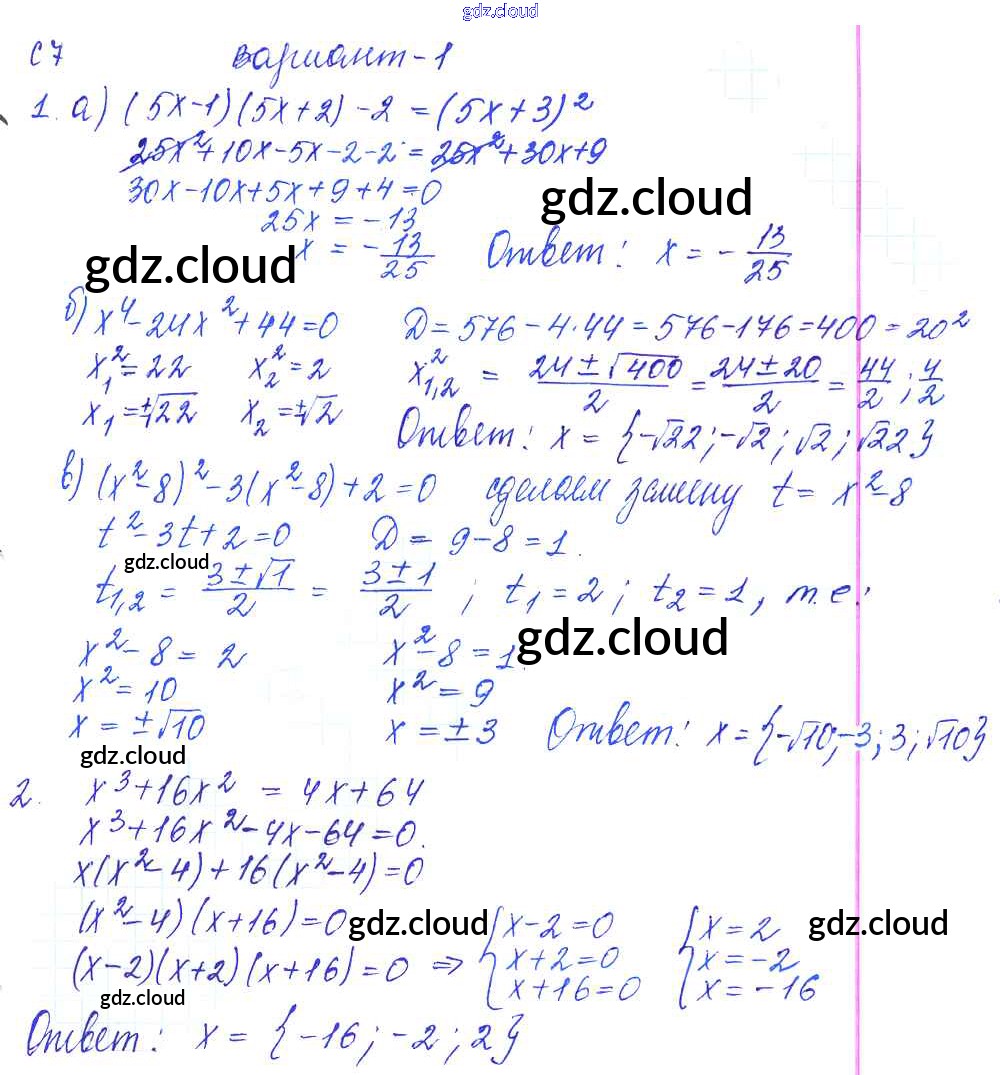 gdz.cloud
С7 вариант-1
1. а) (5x-1)(5x+2)-2=(5x+3)²
25x²+10x-5x-2-2=25x²+30x+9
30x-10x+5x+9+4=0
25x=-13
gdz.cloud
x=-13/25 Ответ: x=-13/25
gdz.cloud
б) x⁴-24x²+44=0 D=576-4·44=576-176=400=20²
x₁²=22 x₂²=2 x²₁,₂ = (24±√400)/2 = (24±20)/2 = 44/2; 4/2
x₁=±√22 x₂=±√2
Ответ: x={-√22;-√2;√2;√22}
в) (x²-8)²-3(x²-8)+2=0 сделаем замену t=x²-8
t²-3t+2=0 D=9-8=1.
gdz.cloud
t₁,₂ = (3±√1)/2 = (3±1)/2; t₁=2; t₂=1, т.е.:
gdz.cloud
x²-8=2 x²-8=1.
x²=10 x²=9
x=±√10 x=±3 Ответ: x={-√10;-3;3;√10}
gdz.cloud
2. x³+16x²=4x+64
x³+16x²-4x-64=0.
x(x²-4)+16(x²-4)=0
(x²-4)(x+16)=0 gdz.cloud {x-2=0 {x=2 gdz.cloud
(x-2)(x+2)(x+16)=0 ⇒ x+2=0 x=-2
x+16=0 x=-16
gdz.cloud
Ответ: x={-16;-2;2}